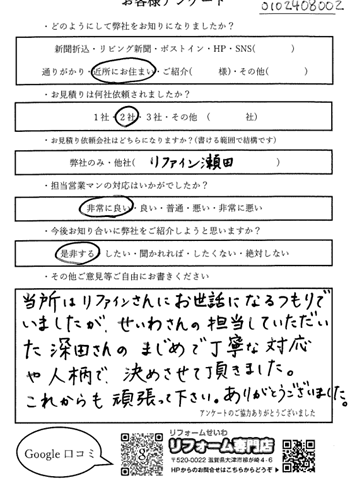 お客様アンケート
0102408002
・どのようにして弊社をお知りになりましたか？
新聞折込・リビング新聞・ポストイン・HP・SNS(　　　)
通りがかり・近所にお住まい・ご紹介(　　　様)・その他(　　　)
・お見積りは何社依頼されましたか？
1社・2社・3社・その他（　　　社)
・お見積り依頼会社はどちらになりますか？(書ける範囲で結構です)
弊社のみ・他社( リファイン瀬田 )
・担当営業マンの対応はいかがでしたか？
非常に良い・良い・普通・悪い・非常に悪い
・今後お知り合いに弊社をご紹介しようと思いますか？
是非する・したい・聞かれれば・したくない・絶対しない
・その他ご意見等ご自由にお書きください
当所はリファインさんにお世話になるつもりで
いましたが、せいわさんの担当していただい
た深田さんのまじめで丁寧な対応
や人柄で、決めさせて頂きました。
これからも頑張って下さい。ありがとうございました。
アンケートのご協力ありがとうございました
Google 口コミ
リフォームせいわ
リフォーム専門店
〒520-0022 滋賀県大津市柳が崎4-6
HPからのお問合せはこちらからどうぞ